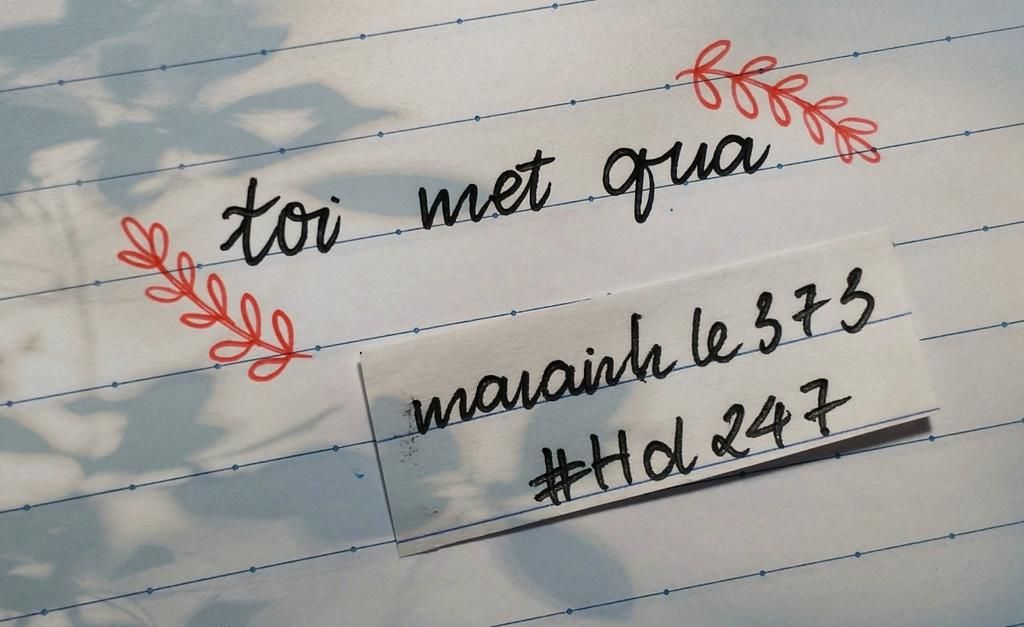 toi met qua
maiainh le373
#Hd247